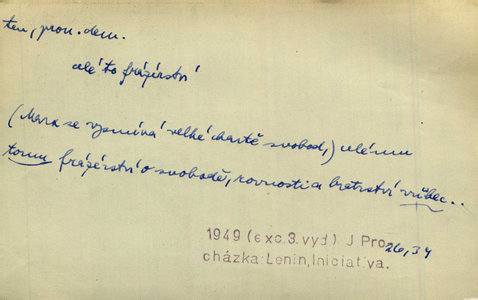 ten, pron. dem.
celé to frázérství
(Marx se vysmívá velké chartě svobod,) celému
tomu frázérství o svobodě, rovnosti a bratrství vůbec..
1949 (exc.3.vyd) J Pro
26,34
cházka: Lenin, Iniciativa.